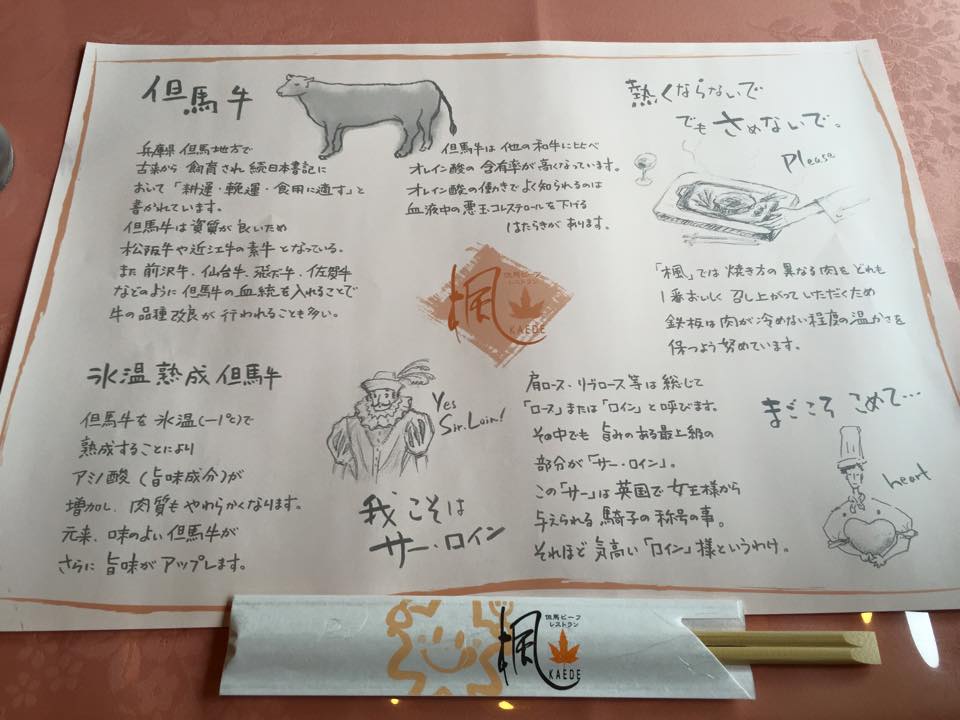 但馬牛
兵庫県 但馬地方で
古来から 飼育され 続日本書記に
おいて「耕運・輓運・食用に適す」と
書かれています。
但馬牛は資質が良いため
松阪牛や近江牛の素牛となっている。
また 前沢牛、仙台牛、飛騨牛、佐賀牛
などのように 但馬牛の血統を入れることで
牛の品種改良が行われることも多い。
但馬牛は 他の和牛に比べ
オレイン酸の含有率が高くなっています。
オレイン酸の働きでよく知られるのは
血液中の悪玉コレステロールを下げる
はたらきがあります。
熱くならないで
でも さめないで。
Please
「楓」では 焼き方の異なる肉をどれも
1番おいしく 召し上がっていただくため
鉄板は肉が冷めない程度の温かさを
保つよう努めています。
但馬ビーフ
レストラン
楓
KAEDE
氷温熟成但馬牛
但馬牛を氷温(-1℃)で
熟成することにより
アミノ酸(旨味成分)が
増加し、肉質もやわらかくなります。
元来、味のよい但馬牛が
さらに旨味がアップします。
Yes
Sir.Loin!
我こそは
サー・ロイン
肩ロース・リブロース等は総じて
「ロース」または「ロイン」と呼びます。
その中でも 旨みのある最上級の
部分が「サー・ロイン」。
この「サー」は英国で女王様から
与えられる騎子の称号の事。
それほど気高い「ロイン」様というわけ。
まごころ こめて…
heart
但馬ビーフ
レストラン
楓
KAEDE